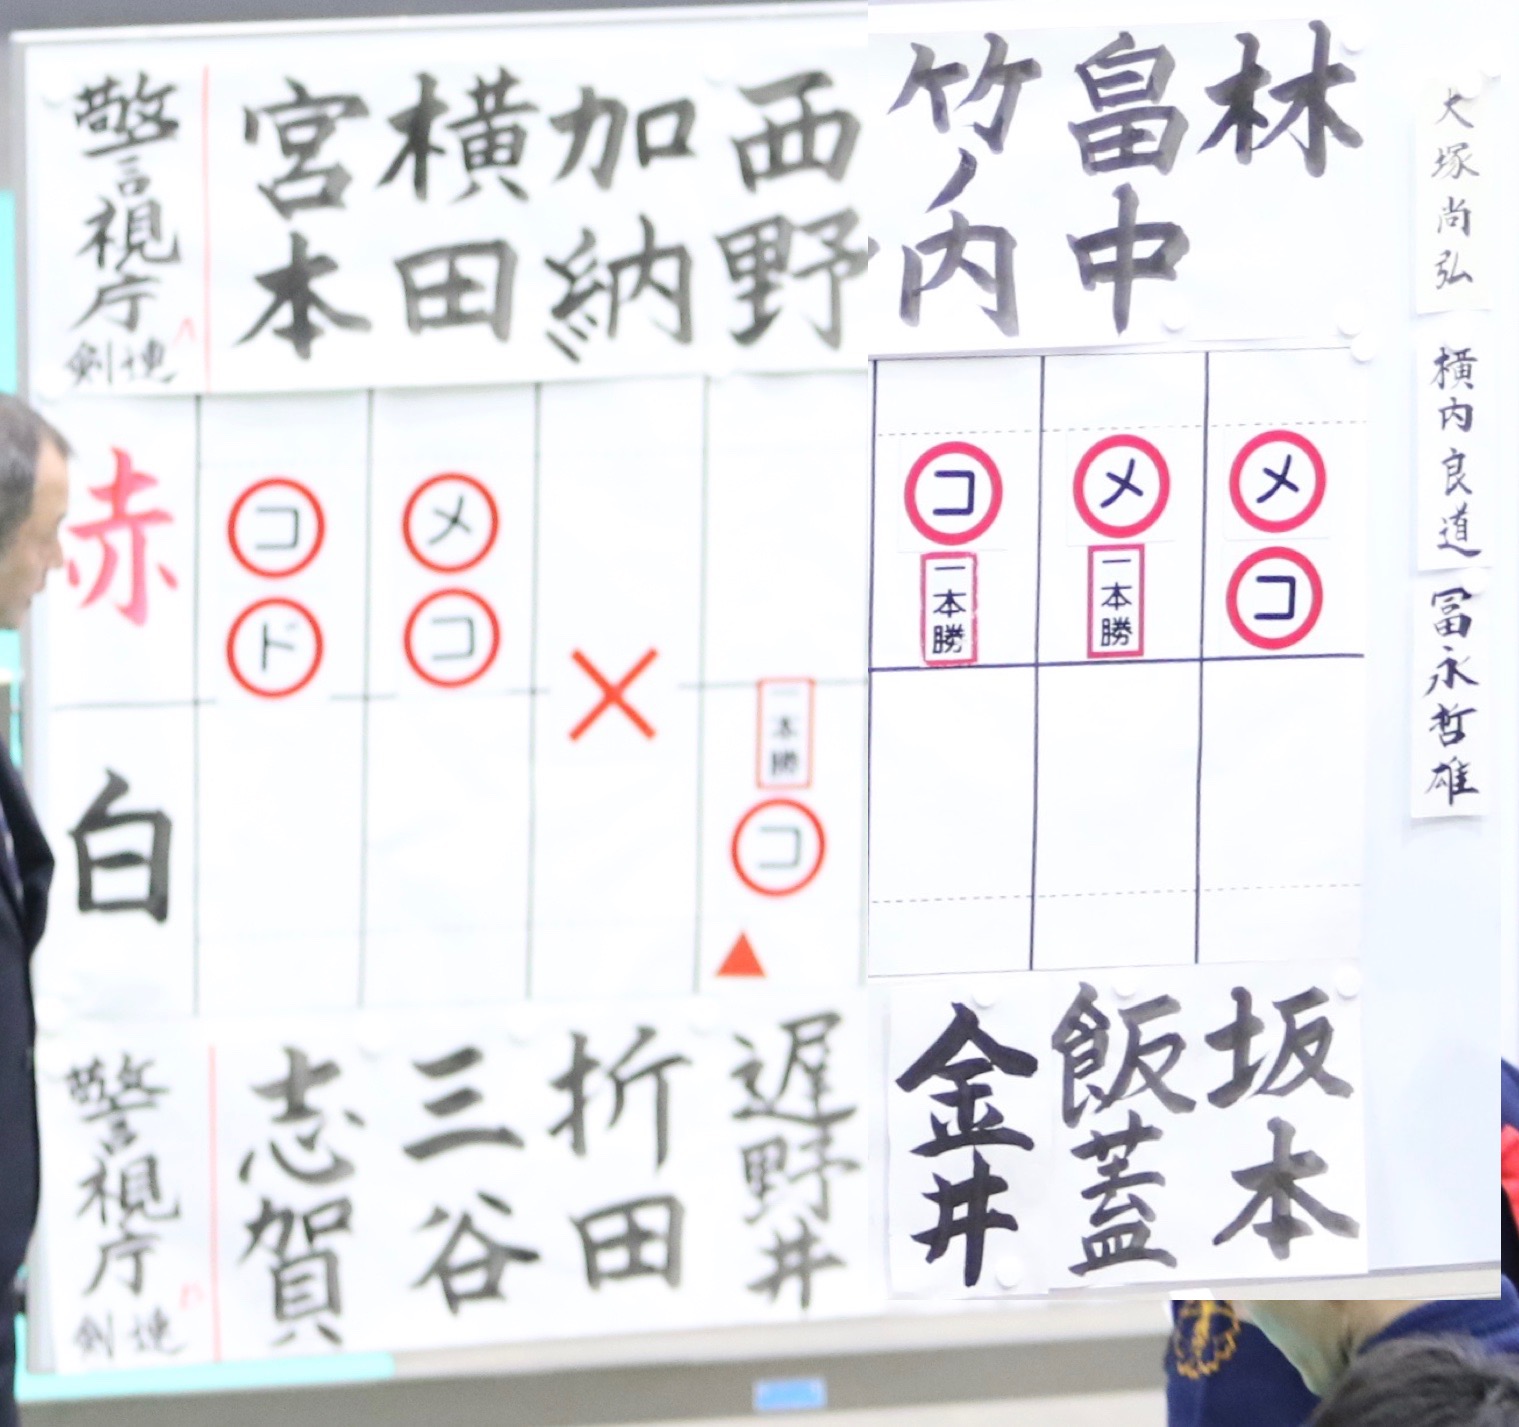 警視庁剣連 へ
宮本
横田
加納
西野
竹ノ内
畠中
林
赤
コ
ド
メ
コ
×
コ
一本勝
メ
一本勝
メ
コ
白
一本勝
コ
▲
警視庁剣連
志賀
三谷
折田
遅野井
金井
飯蓋
坂本
大塚尚弘
横内良道
冨永哲雄